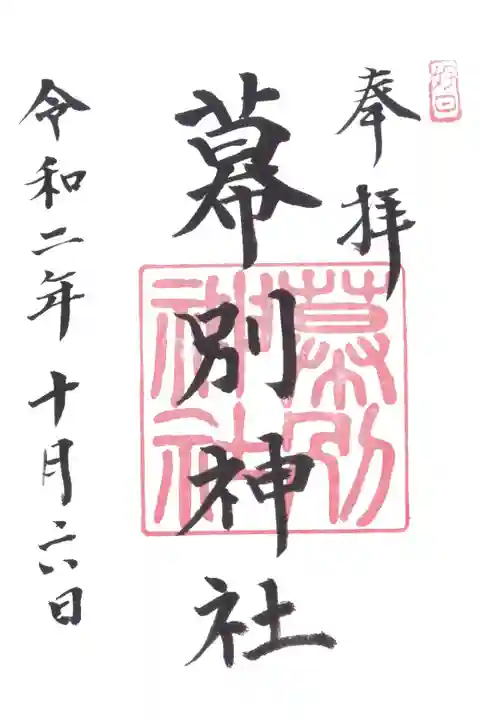 奉拝
幕別神社
幕別
神社
令和二年十月六日